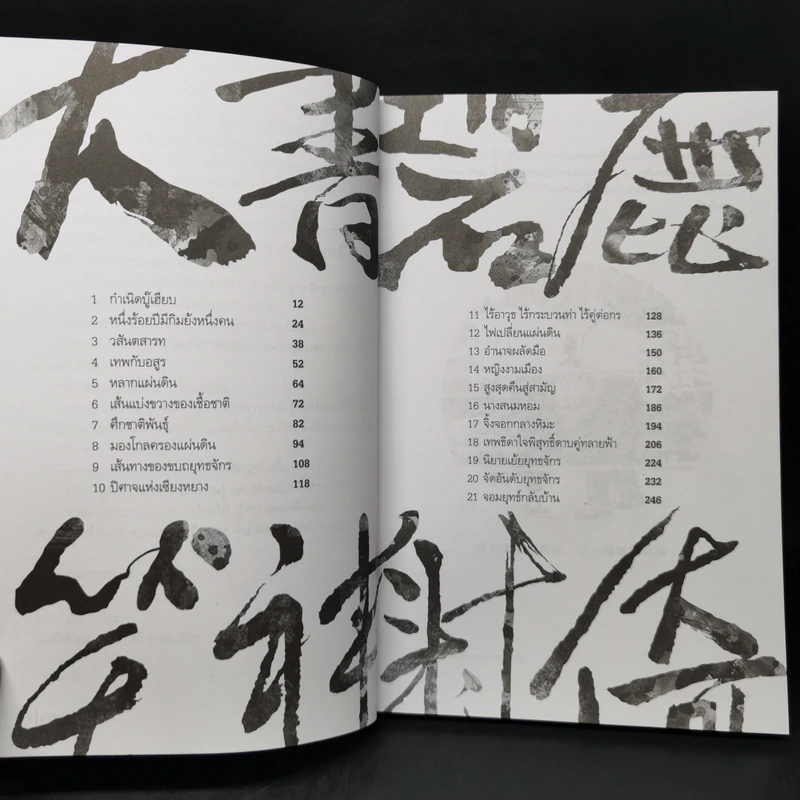 書碧鹿
1 กำเนิดบู๊เฮียบ 12
2 หนึ่งร้อยปีมีกิมย้งหนึ่งคน 24
3 วสันตสารท 38
4 เทพกับอสูร 52
5 หลากแผ่นดิน 64
6 เส้นแบ่งขวางของเชื้อชาติ 72
7 ศึกชาติพันธุ์ 82
8 มองโกลครองแผ่นดิน 94
9 เส้นทางของขบถยุทธจักร 108
10 ปีศาจแห่งเซียงหยาง 118
11 ไร้อาวุธ ไร้กระบวนท่า ไร้คู่ต่อกร 128
12 ไฟเปลี่ยนแผ่นดิน 136
13 อำนาจผลัดมือ 150
14 หญิงงามเมือง 160
15 สูงสุดคืนสู่สามัญ 172
16 นางสนมหอม 186
17 จิ้งจอกกลางหิมะ 194
18 เทพธิดาใจพิสุทธิ์ดาบคู่ทลายฟ้า 206
19 นิยายเย้ยยุทธจักร 224
20 จัดอันดับยุทธจักร 232
21 จอมยุทธ์กลับบ้าน 246
笑射倚